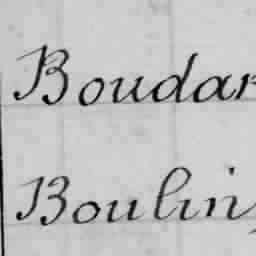 Boudar
Boulin